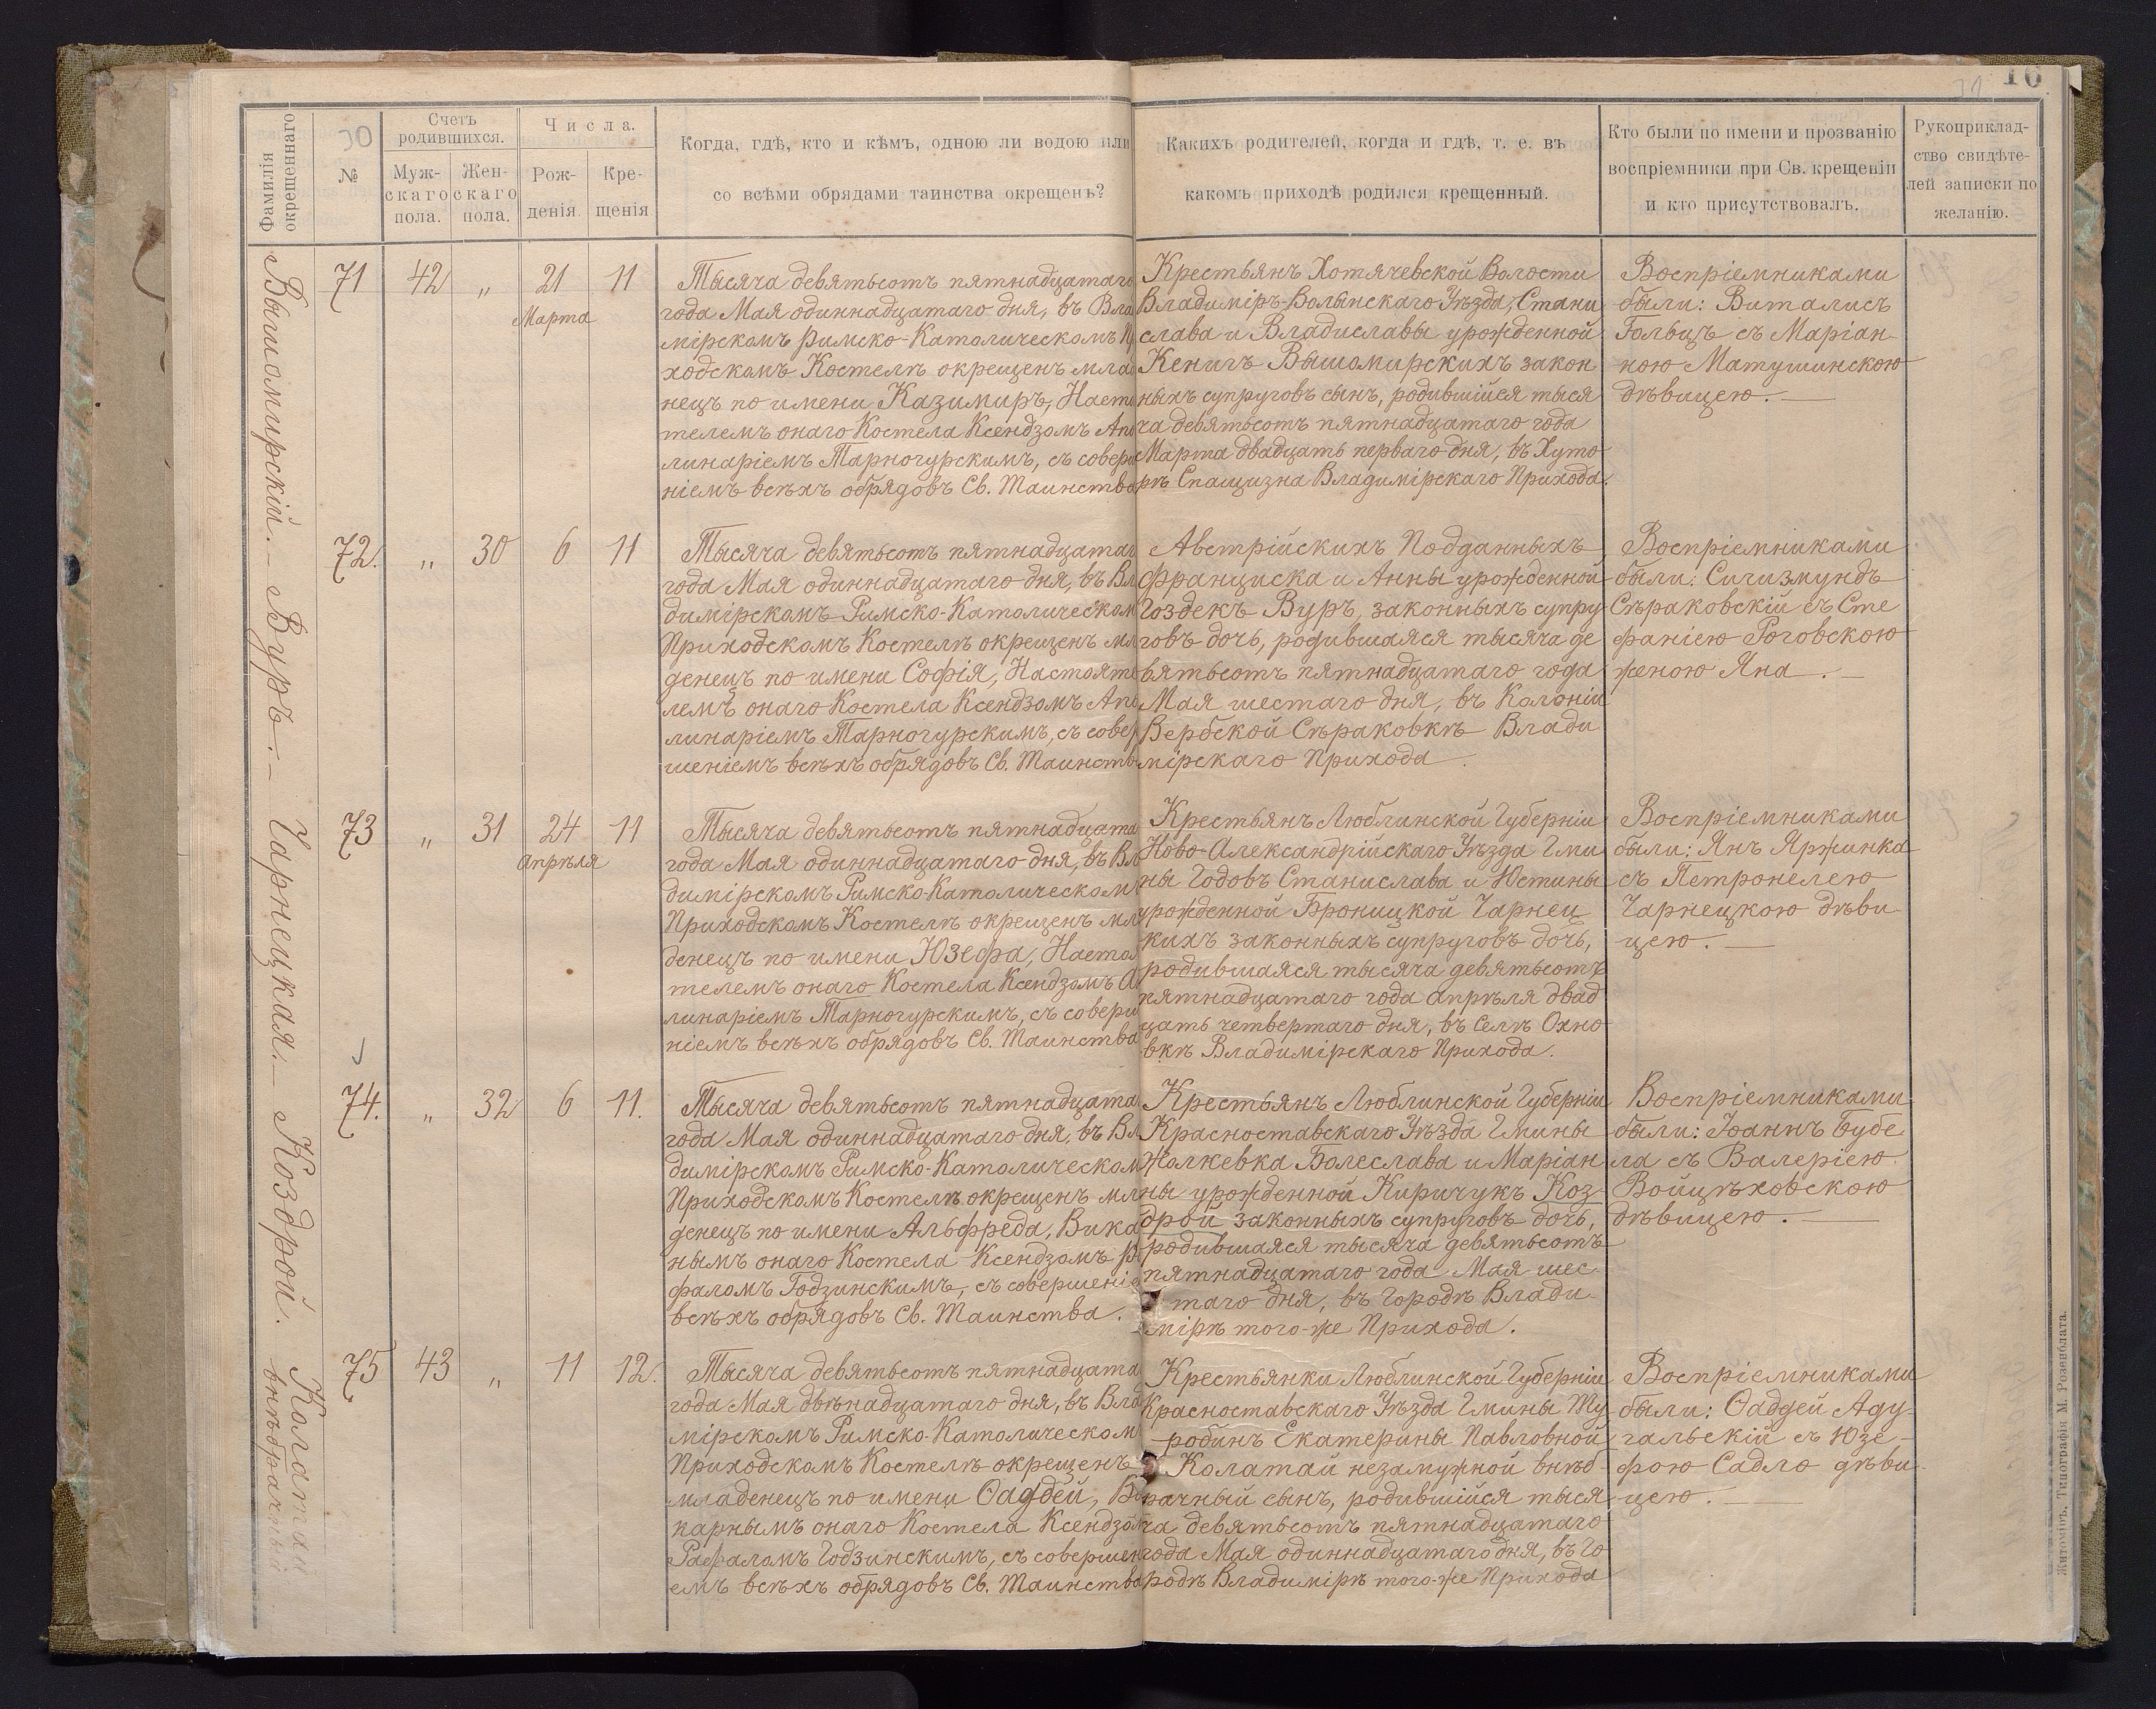 16
31
30
Фамилія
окрещеннаго
№
Счетъ
родившихся.
Муж-
скаго
пола.
Жен-
скаго
пола.
Числа.
Рож-
денія.
Кре-
щенія
Когда, гдѣ, кто и кѣмъ, одною ли водою или
со всѣми обрядами таинства окрещенъ?
Какихъ родителей, когда и гдѣ, т. е. въ
какомъ приходѣ родился крещенный.
Кто были по имени и прозванію
воспріемники при Св. крещеніи
и кто присутствовалъ.
Рукоприклад-
ство свидѣте-
лей записки по
желанію.
Вышомирскій.
71 42 „ 21 11
Марта
Тысяча девятьсотъ пятнадцатаго
года Мая одиннадцатаго дня, въ Вла
мірскомъ Римско-Католическомъ П
ходскомъ Костелѣ окрещенъ мла
нецъ по имени Казимиръ, Насто
телемъ онаго Костела Ксендзомъ Апо
линаріемъ Тарногурскимъ, съ соверш
ніемъ всѣхъ обрядовъ Св. Таинства
Крестьянъ Хотячевской Волости
Владиміръ-Волынскаго Уѣзда, Стани
слава и Владиславы урожденной
Кенигъ Вышомирскихъ закон
ныхъ супруговъ сынъ, родившійся тыся
ча девятьсотъ пятнадцатаго года
Марта двадцать перваго дня, въ Хуто
рѣ Спащизна Владимірскаго Прихода.
Воспріемниками
были: Виталисъ
Гольцъ съ Маріан
ною Матушинскою
дѣвицею.
Вуръ.
72. „ 30 6 11
Тысяча девятьсотъ пятнадцатаг
года Мая одиннадцатаго дня, въ Вл
димірскомъ Римско-Католическом
Приходскомъ Костелѣ окрещенъ мл
денецъ по имени Софія, Настояте
лемъ онаго Костела Ксендзомъ Апо
линаріемъ Тарногурскимъ, съ совер
шеніемъ всѣхъ обрядовъ Св. Таинств
Австрійскихъ Подданныхъ
Франциска и Анны урожденной
Гоздекъ Вуръ, законныхъ супру
говъ дочь, родившаяся тысяча де
вятьсотъ пятнадцатаго года
Мая шестаго дня, въ Колоніи
Вербской Сѣраковкѣ Влади
мірскаго Прихода.
Воспріемниками
были: Сигизмундъ
Сѣраковскій съ Сте
фаніею Роговскою
женою Яна.
Чарнецкая.
73 „ 31 24 11
Апрѣля
Тысяча девятьсотъ пятнадцата
года Мая одиннадцатаго дня, въ Вл
димірскомъ Римско-Католическом
Приходскомъ Костелѣ окрещенъ мл
денецъ по имени Юзефа, Настоя
телемъ онаго Костела Ксендзомъ А
линаріемъ Тарногурскимъ, съ соверш
ніемъ всѣхъ обрядовъ Св. Таинства
Крестьянъ Люблинской Губерніи
Ново-Александрійскаго Уѣзда Гми
ны Годовъ Станислава и Юстины
урожденной Броницкой Чарнец
кихъ законныхъ супруговъ дочь,
родившаяся тысяча девятьсотъ
пятнадцатаго года Апрѣля двад
цать четвертаго дня, въ Селѣ Охно
вкѣ Владимірскаго Прихода.
Воспріемниками
были: Янъ Яржинка
съ Петронелею
Чарнецкою дѣви-
цею.
Коздрой.
74. „ 32 6 11.
Тысяча девятьсотъ пятнадцата
года Мая одиннадцатаго дня, въ Вл
димірскомъ Римско-Католическом
Приходскомъ Костелѣ окрещенъ мла
денецъ по имени Альфреда, Вика
нымъ онаго Костела Ксендзомъ Р
фаломъ Годзинскимъ, съ совершеніе
всѣхъ обрядовъ Св. Таинства.
Крестьянъ Люблинской Губерніи
Красноставскаго Уѣзда Гмины
Жолкевка Болеслава и Маріан
ны урожденной Киричукъ Коз-
дрой законныхъ супруговъ дочь,
родившаяся тысяча девятьсотъ
пятнадцатаго года Мая шес-
таго дня, въ Городѣ Влади-
мірѣ того-же Прихода.
Воспріемниками
были: Іоаннъ Бубе
ла съ Валеріею
Войцѣховскою
дѣвицею.
Колатай
внѣбрачный
75 43 „ 11 12.
Тысяча девятьсотъ пятнадцата
года Мая двѣнадцатаго дня, въ Влад
мірскомъ Римско-Католическом
Приходскомъ Костелѣ окрещенъ
младенецъ по имени Ѳаддей, Ви
карнымъ онаго Костела Ксендзом
Рафаломъ Годзинскимъ, съ совершен
емъ всѣхъ обрядовъ Св. Таинства
Крестьянки Люблинской Губерніи
Красноставскаго Уѣзда Гмины Ту
робинъ Екатерины Павловной
Колатай незамужной внѣб
рачный сынъ, родившійся тыся
ча девятьсотъ пятнадцатаго
года Мая одиннадцатаго дня, въ Го
родѣ Владимірѣ того-же Прихода
Воспріемниками
были: Ѳаддей Аду-
гальскій съ Юзе-
фою Садло дѣви-
цею.
Житоміръ. Типографія М. Розенблата.